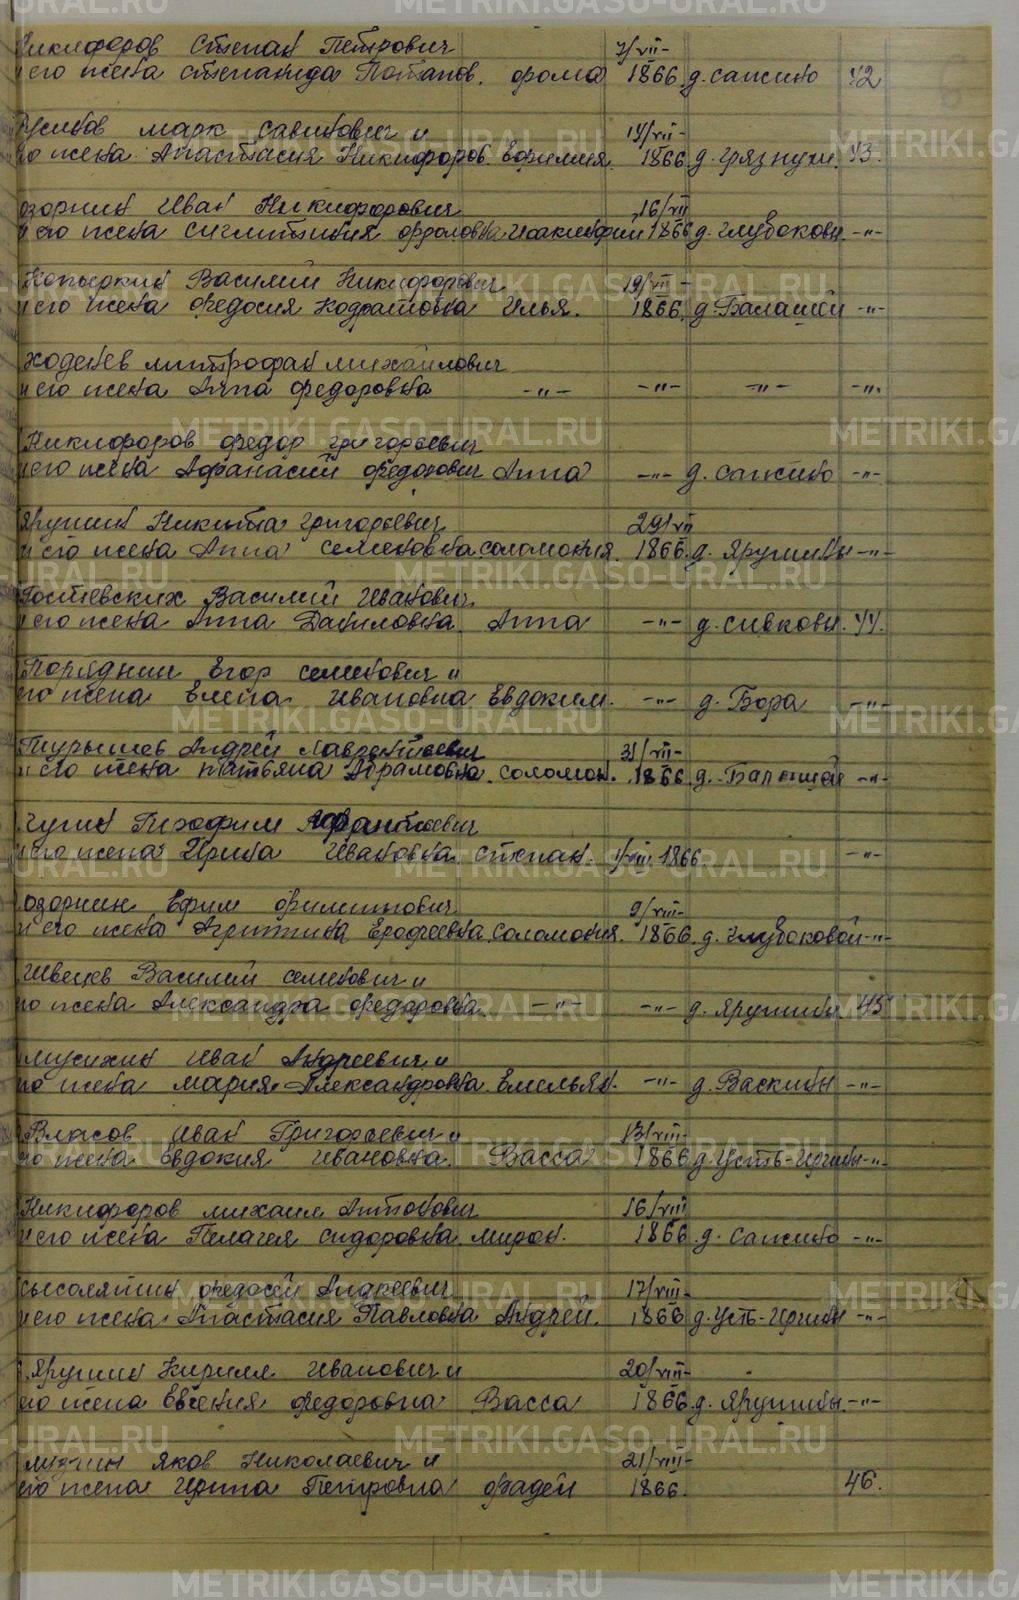 Никифоров Степан Петрович 7/VII-
и его жена Степанида Потапов. Фома 1866. д. Сажино 42
Усинов Марк Савинович и 14/VII-
его жена Анастасия Никифоров. Ефимия. 1866 д. Грязнухи. 43.
Озорнин Иван Никифорович 16/VII
и его жена Сиглитикия Фроловна 1866 д. Глубоковы. -"-
Копыркин Василий Никифорович 19/VII -
и его жена Федосия Кодратовна Илья. 1866. д. Балашей -"-
Ходенев Митрофан Михайлович
и его жена Анна Федоровна -"- -"- -"- -"-
Никифоров Федор Григорьевич
и его жена Афанасий Федорович Анна -"- д. Сажино -"-
Ярушин Никита Григорьевич 29/VII
и его жена Анна Семеновна Соломония. 1866. д. Ярушины -"-
Гостевских Василий Иванович
и его жена Анна Даниловна Анна -"- д. Сивковы. 44.
Поряднин Егор Семенович и
его жена Елена Ивановна Евдоким. -"- д. Бора -"-
Турышев Андрей Лаврентьевич 31/VII-
и его жена Татьяна Абрамовна Соломон. 1866 д. Балашей -"-
Чугин Трофим
и его жена Ирина Ивановна Степан. 1/VIII 1866. -"-
Озорнин Ефим Филиппович 9/VIII-
и его жена Агриппина Ерофеевна Соломония. 1866 д. Глубоковой -"-
Швецев Василий Семенович и
его жена Александра Федоровна -"- -"- д. Ярушины 45
Мусихин Иван Андреевич и
его жена Мария Александровна Емельян. -"- д. Васкины -"-
Власов Иван Григорьевич и 13/VIII-
его жена Евдокия Ивановна. Васса 1866 д. Усть-Иргины -"-
Никифоров Михаил Антонович 16/VIII
и его жена Пелагея Сидоровна Мирон. 1866. д. Сажино -"-
Сысолятин Федосей Андреевич 17/VIII-
и его жена Анастасия Павловна Андрей. 1866 д. Усть-Иргины -"-
Ярушин Кирилл Иванович и 20/VIII-
его жена Евгения Федоровна Васса 1866 д. Ярушины. -"-
Яков Николаевич и 21/VIII-
его жена Ирина Петровна Фадей 1866. 46.
METRIKI.GASO-URAL.RU